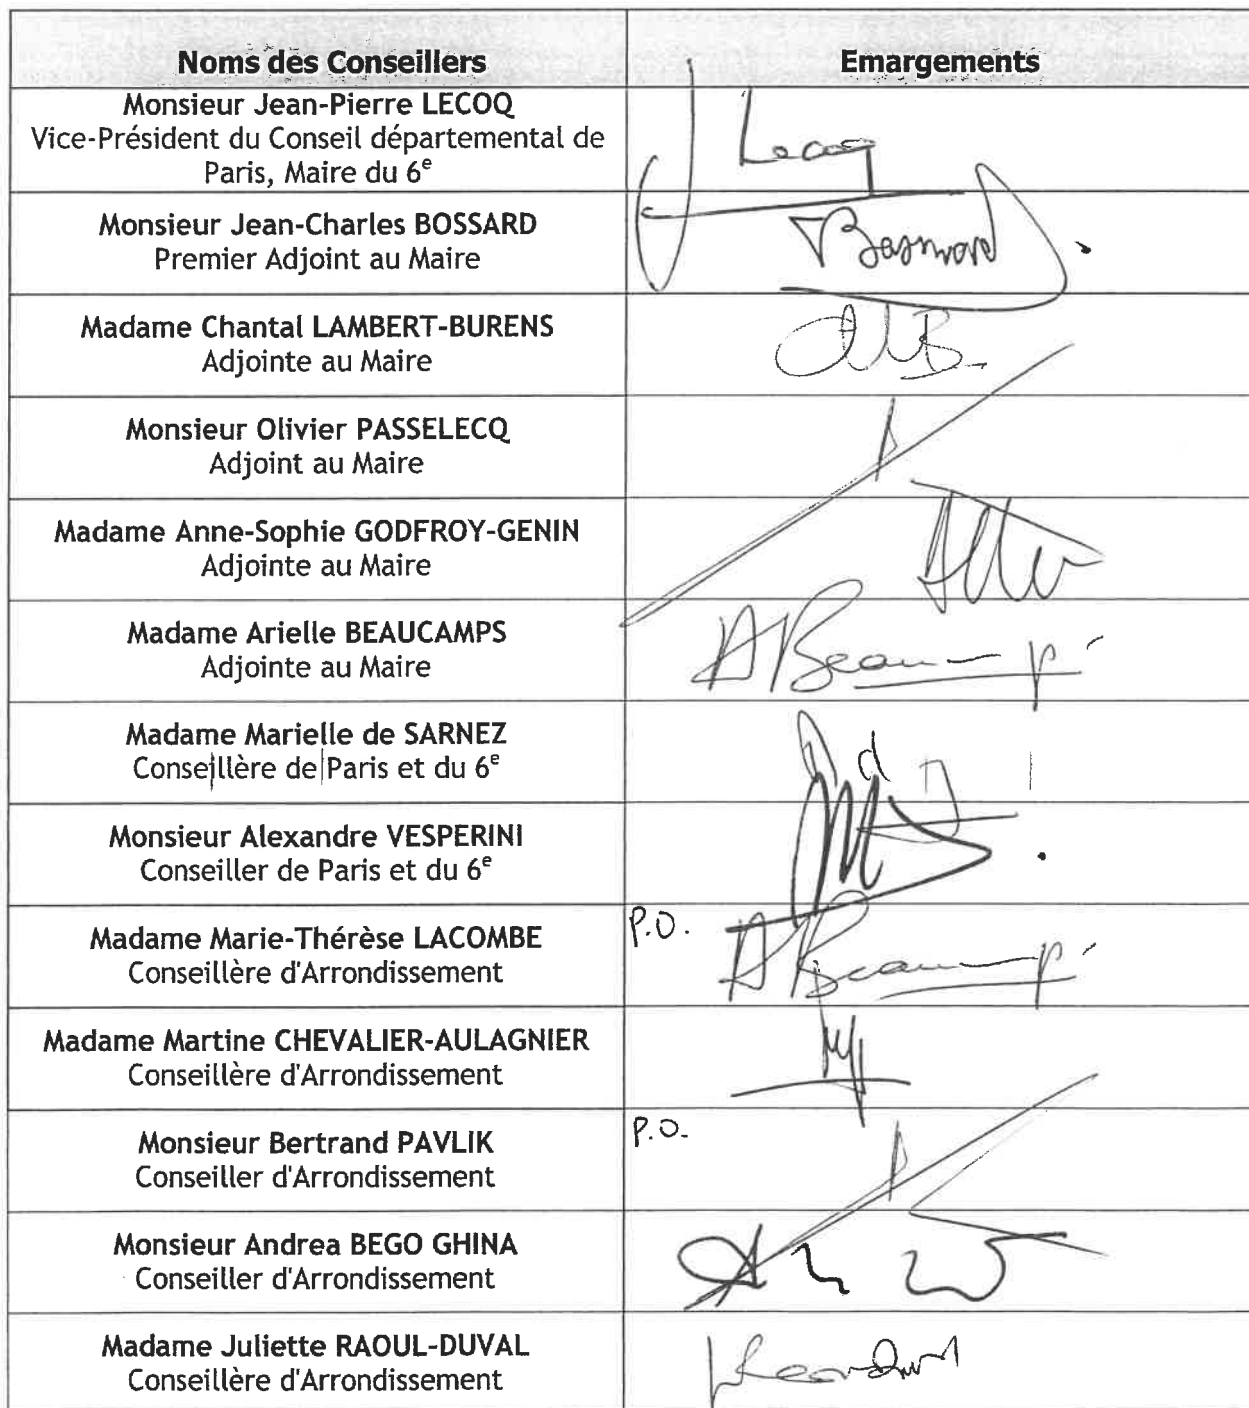 Noms des Conseillers Emargements
Monsieur Jean-Pierre LECOQ
Vice-Président du Conseil départemental de
Paris, Maire du 6e
Lecoq
Monsieur Jean-Charles BOSSARD
Premier Adjoint au Maire
Bossard
Madame Chantal LAMBERT-BURENS
Adjointe au Maire
Monsieur Olivier PASSELECQ
Adjoint au Maire
Madame Anne-Sophie GODFROY-GENIN
Adjointe au Maire
Madame Arielle BEAUCAMPS
Adjointe au Maire
Madame Marielle de SARNEZ
Conseillère de Paris et du 6e
Monsieur Alexandre VESPERINI
Conseiller de Paris et du 6e
Madame Marie-Thérèse LACOMBE
Conseillère d'Arrondissement
P.O.
Madame Martine CHEVALIER-AULAGNIER
Conseillère d'Arrondissement
Monsieur Bertrand PAVLIK
Conseiller d'Arrondissement
P.O.
Monsieur Andrea BEGO GHINA
Conseiller d'Arrondissement
Madame Juliette RAOUL-DUVAL
Conseillère d'Arrondissement